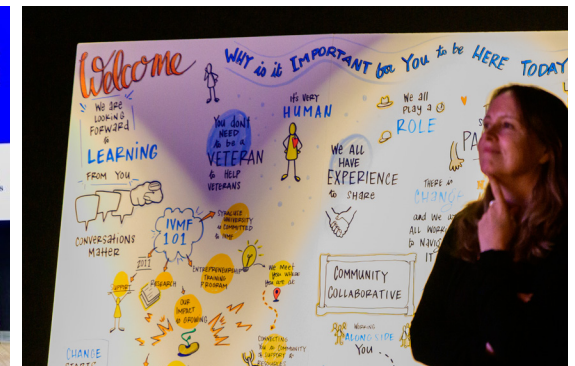 Welcome
WHY is it IMPORTANT for YOU to be HERE TODAY
WE ARE
LOOKING
FORWARD
to
LEARNING
FROM YOU
CONVERSATIONS
MATTER
You don't
NEED
to be a
VETERAN
to HELP
VETERANS
It's VERY
HUMAN
WE ALL
HAVE
EXPERIENCE
to SHARE
We all
PLAY a
ROLE
THERE is
CHANGE
and we
ALL WORK
to
IT
IVMF
101
SYRACUSE
UNIVERSITY
is COMMITTED
2011
SUPPORT
RESEARCH
ENTREPRENEURSHIP
TRAINING
PROGRAM
OUR
IMPACT
is GROWING
WE MEET
YOU WHERE
YOU ARE AT
CONNECTING
COMMUNITY
of SUPPORT &
RESOURCES
COMMUNITY
COLLABORATIVE
WORKING
ALONGSIDE
YOU
CHANGE